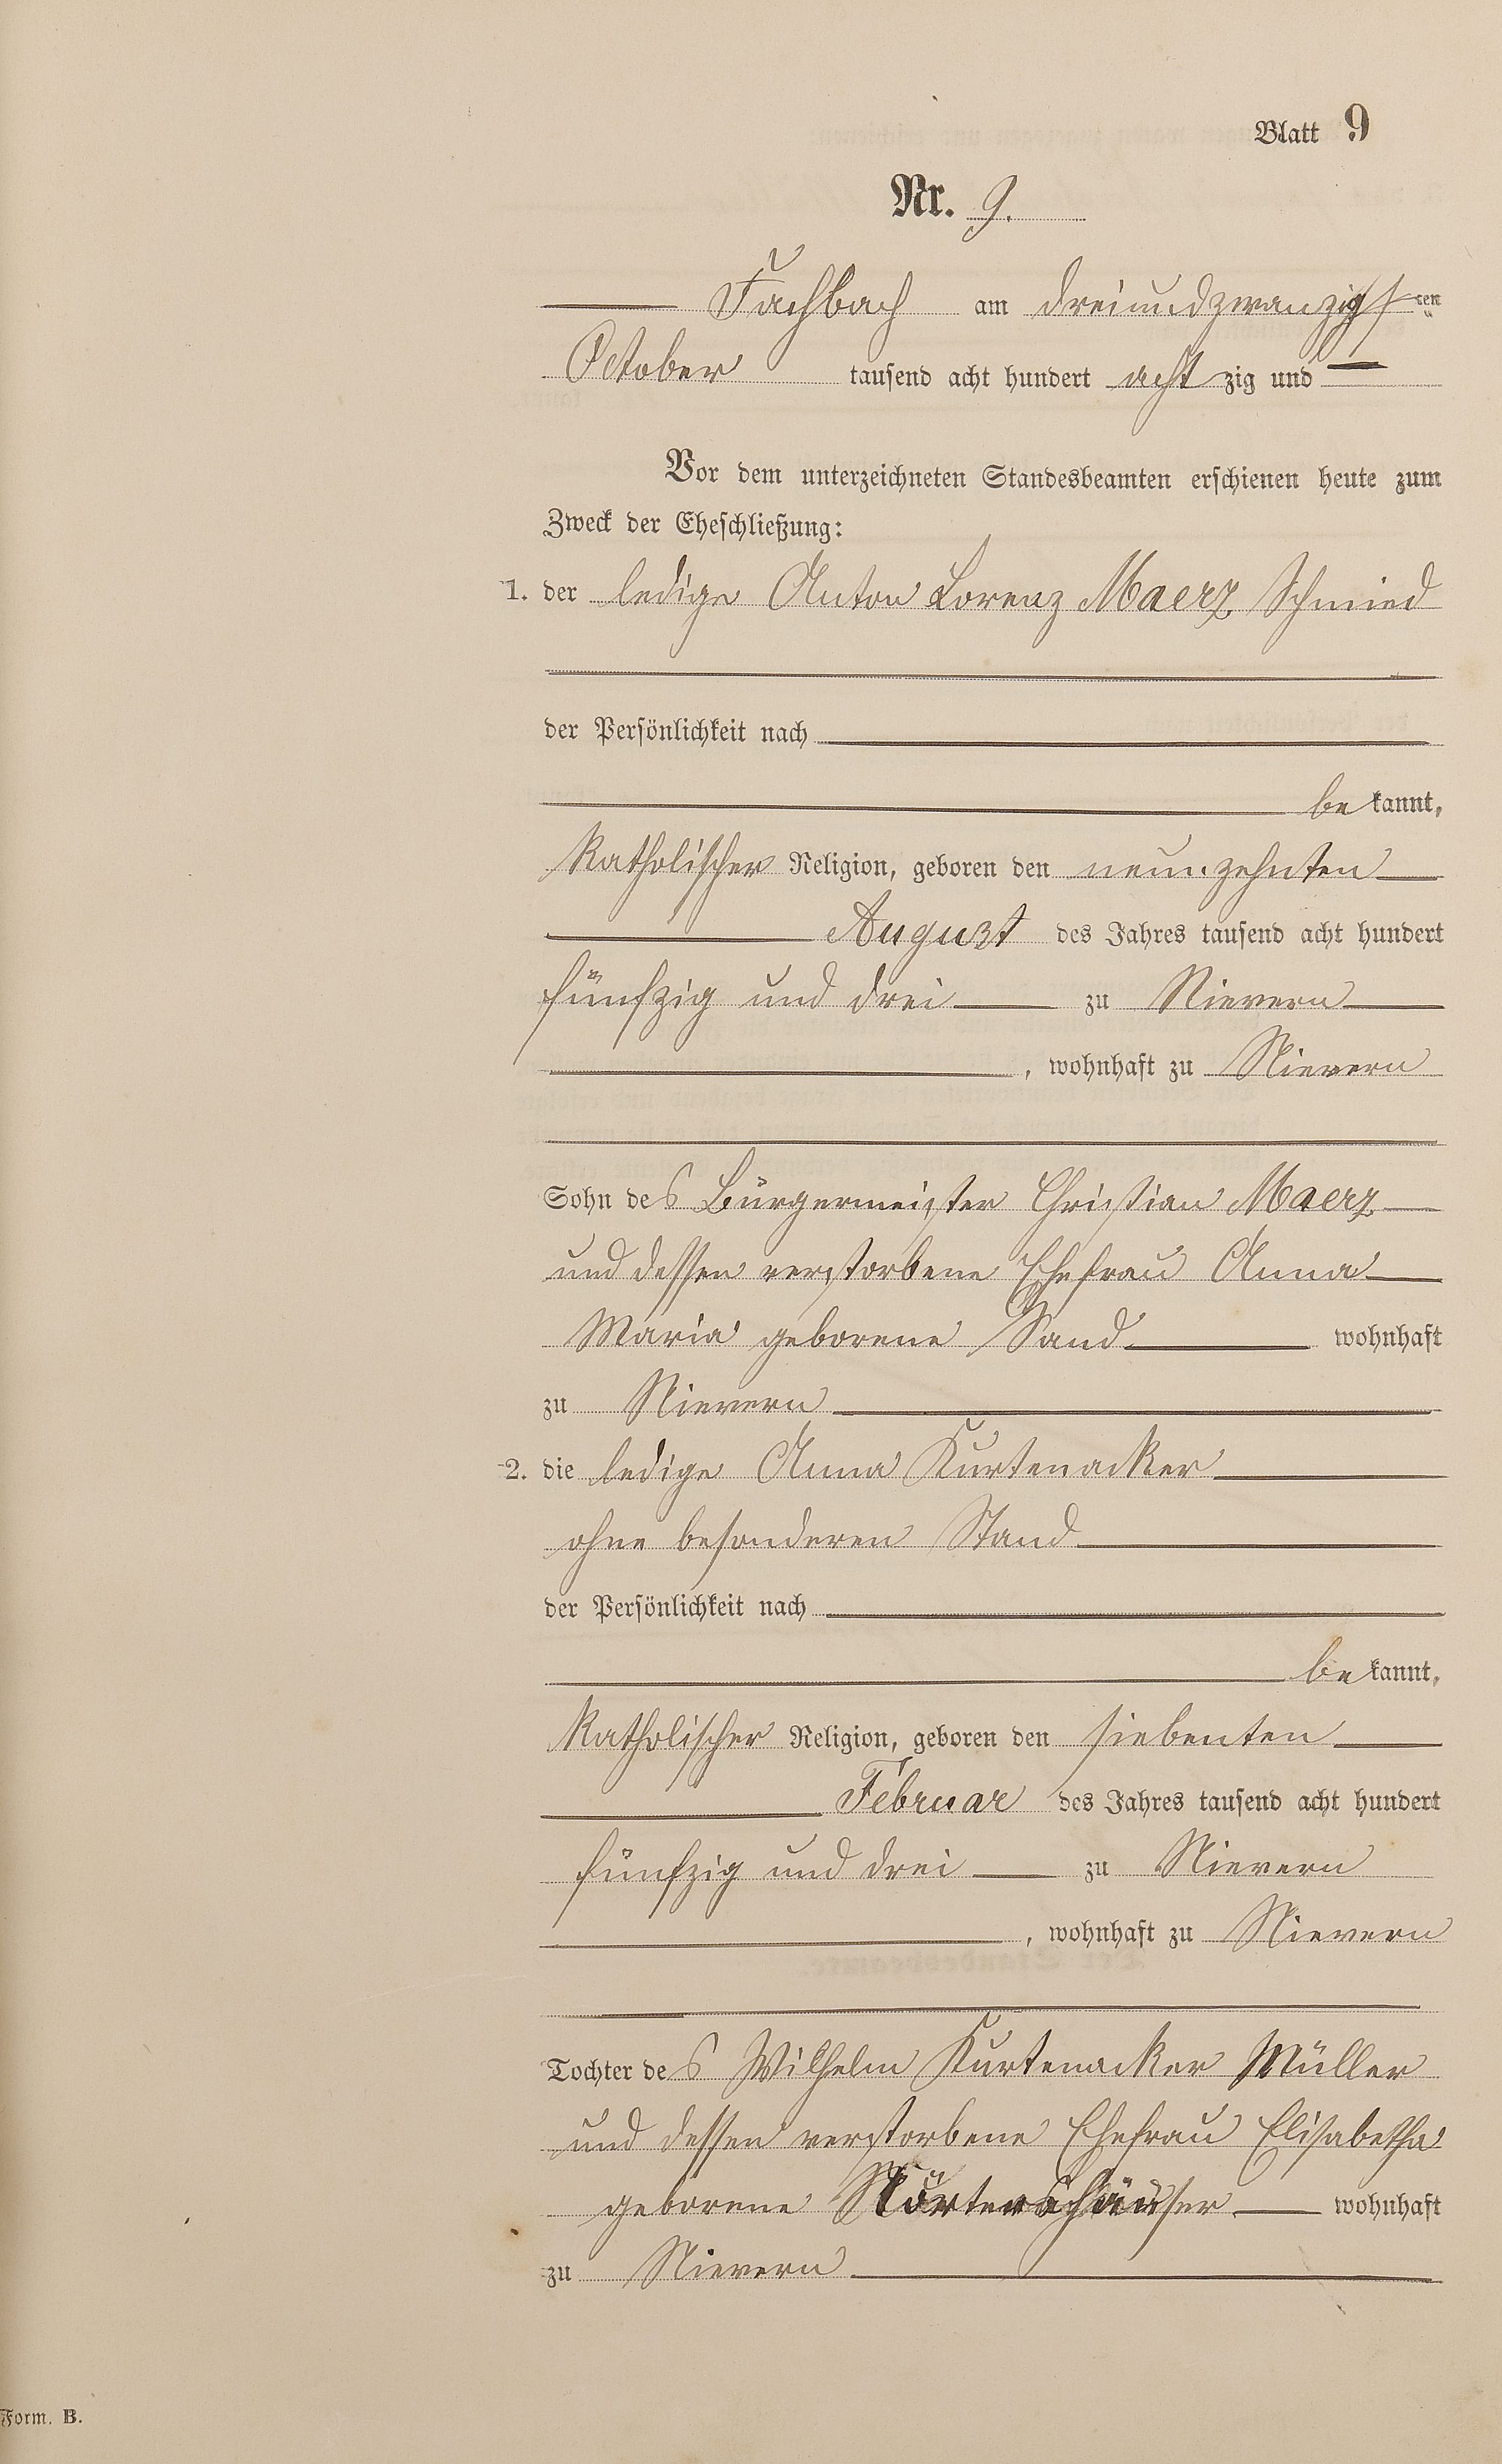 Blatt 9
Nr. 9.
Fachbach am dreiundzwanzigsten
October tausend acht hundert acht zig und
Vor dem unterzeichneten Standesbeamten erschienen heute zum
Zweck der Eheschließung:
1. der ledige Anton Lorenz Maerz Schmied
der Persönlichkeit nach
be kannt,
Katholischer Religion, geboren den neunzehnten
August des Jahres tausend acht hundert
fünfzig und drei zu Nievern
, wohnhaft zu Nievern
Sohn des Bürgermeister Christian Maerz
und dessen verstorbene Ehefrau Anna
Maria geborene Sand wohnhaft
zu Nievern
2. die ledige Anna Kurtenacker
ohne besonderen Stand
der Persönlichkeit nach
be kannt,
Katholischer Religion, geboren den siebenten
Februar des Jahres tausend acht hundert
fünfzig und drei zu Nievern
, wohnhaft zu Nievern
Tochter des Wilhelm Kurtenacker Müller
und dessen verstorbene Ehefrau Elisabetha
geborene wohnhaft
zu Nievern
Form. B.